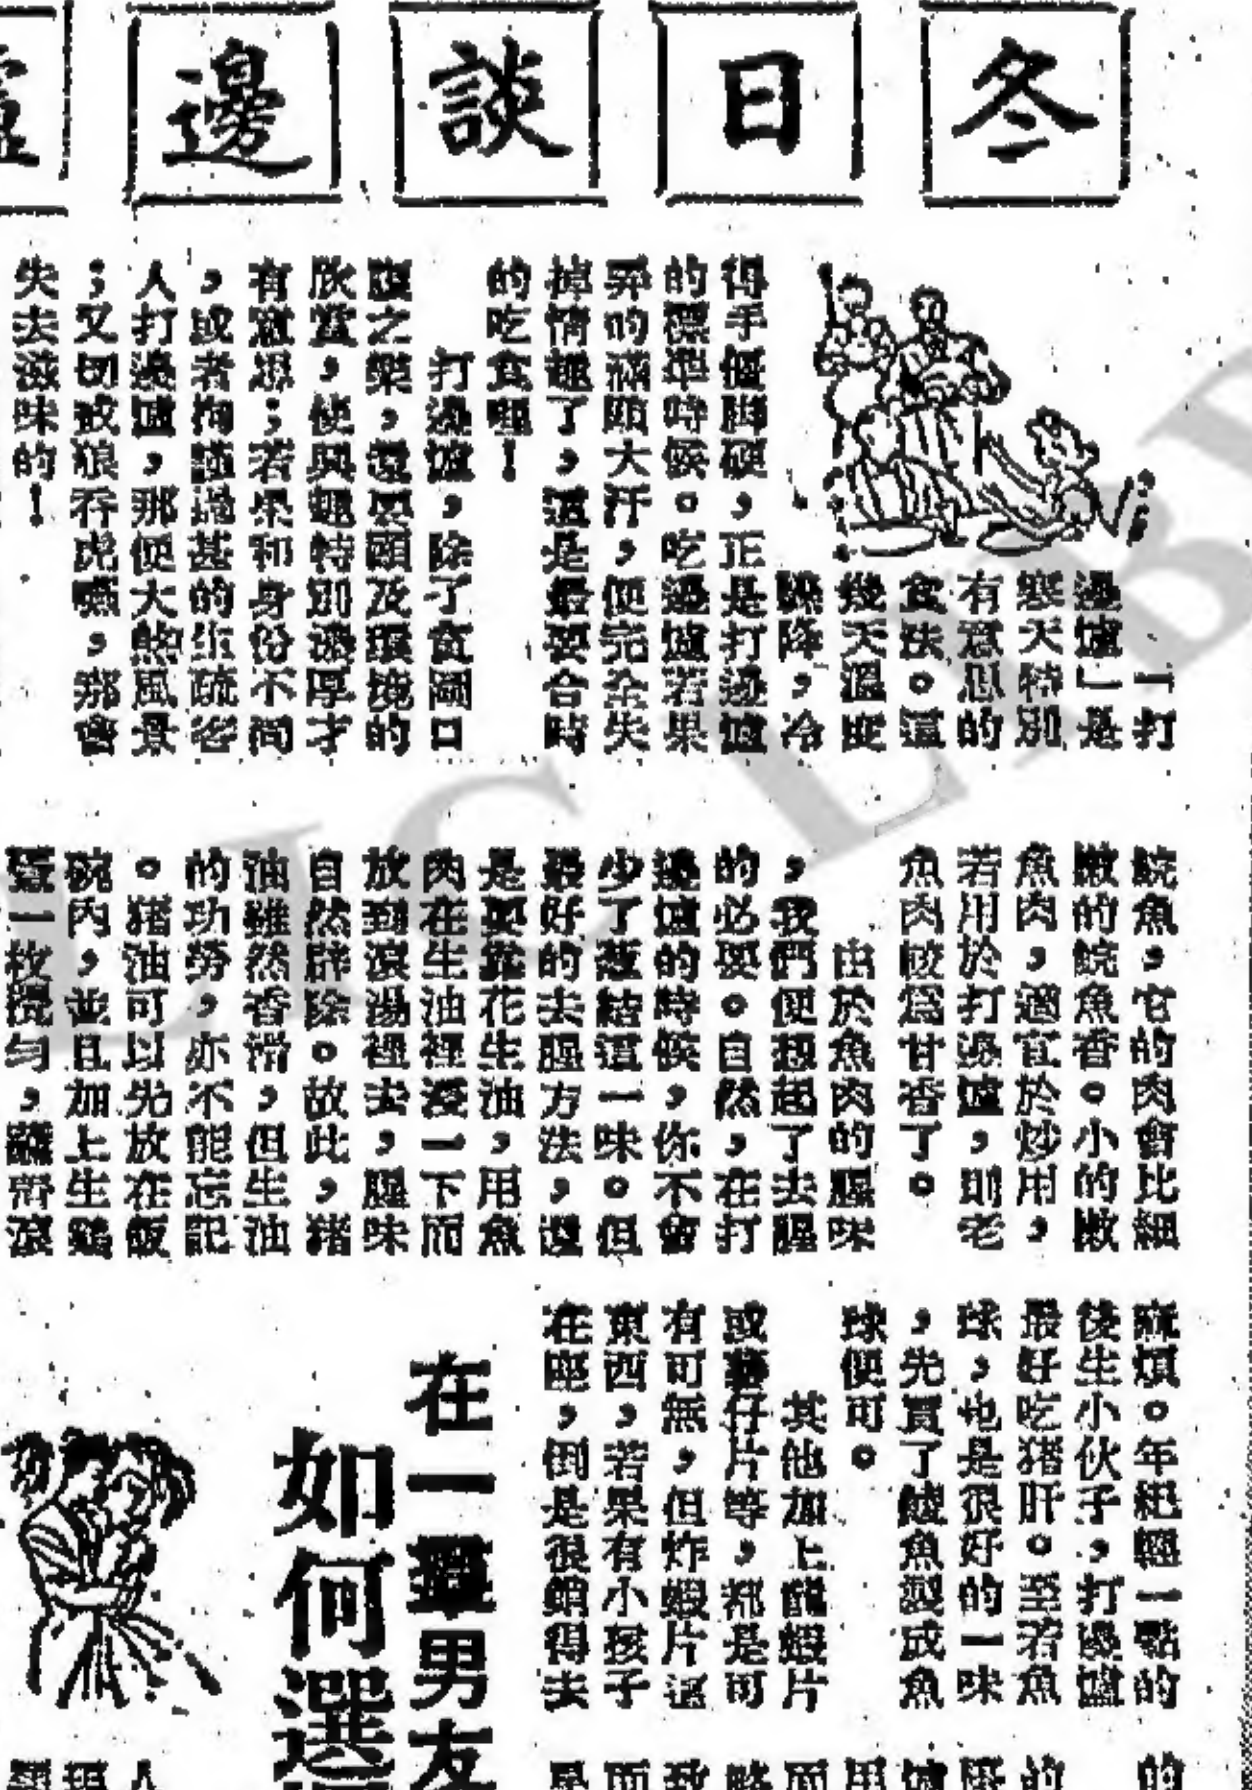 冬日談邊爐
「打
邊爐」是
寒天特別
有意思的
食法。這
幾天溫度
驟降,冷
得手僵脚硬,正是打邊爐
的標準時候。吃邊爐若果
弄的滿頭大汗,便完全失
掉情趣了,這是最要合時
的吃食哩!
打邊爐,除了貪圖口
腹之樂,還要顧及環境的
欣賞,使興趣特別濃厚才
有意思;若果和身份不同
,或者拘謹過甚的生疏客
人打邊爐,那便大煞風景
;又切戒狼吞虎嚥,那會
失去滋味的!
鯇魚,它的肉會比細
嫩的鯇魚香。小的嫩
魚肉,適宜於炒用,
若用於打邊爐,則老
魚肉較爲甘香了。
由於魚肉的腥味
,我們便想起了去腥
的必要。自然,在打
邊爐的時候,你不會
少了薑結這一味。但
最好的去腥方法,還
是要靠花生油,用魚
肉在生油裡浸一下而
放到滾湯裡去,腥味
自然辟除。故此,猪
油雖然香滑,但生油
的功勞,亦不能忘記
。猪油可以先放在飯
碗內,並且加上生鷄
蛋一枚攪勻,蘸齊滾
麻煩。年紀輕一點的
後生小伙子,打邊爐
最好吃猪肝。至若魚
球,也是很好的一味
,先買了鯪魚製成魚
球便可。
其他加上龍蝦片
或薯仔片等,都是可
有可無,但炸蝦片這
東西,若果有小孩子
在座,倒是很銷得去
在一羣男友
如何選